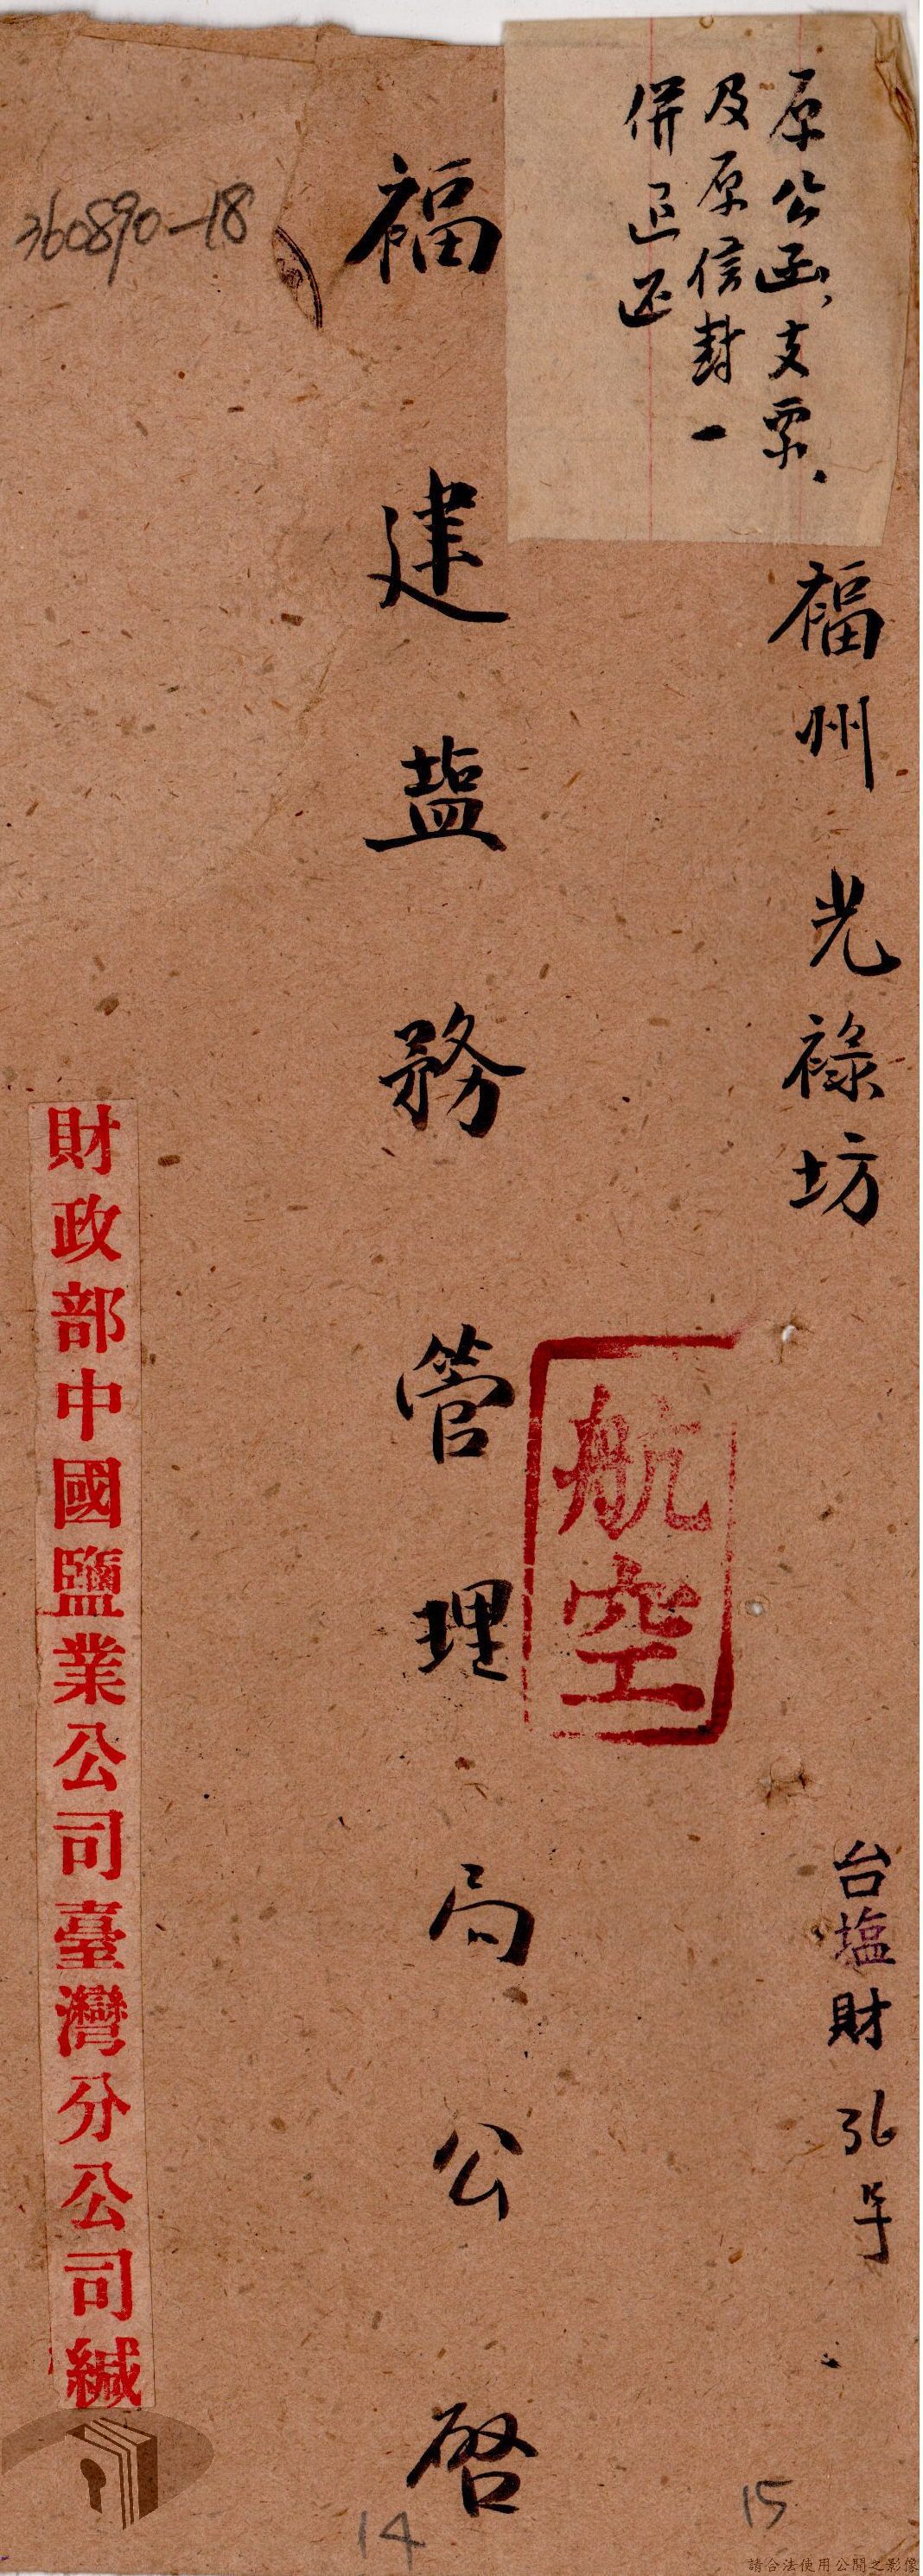 原公函、支票、
及原信封一
併退还
福州光祿坊
台塩財 孔字
航空
福建塩務管理局公啓
360890-18
財政部中國鹽業公司臺灣分公司緘
15
14
請合法使用公開之影像